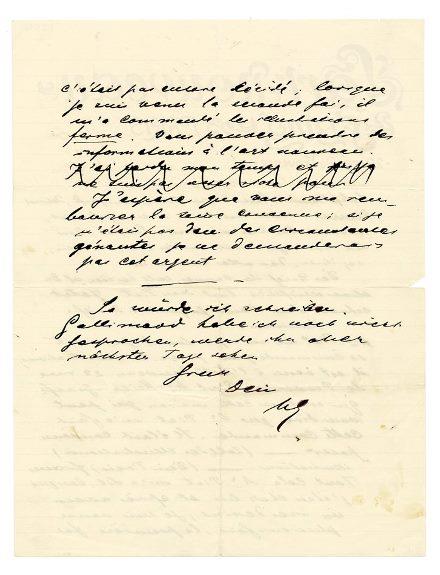 c'était pas encore décidé; lorsque
je suis venu la seconde foi, il
m'a commandé les illustrations
ferme. Vous pouvez prendre des
informations à l'art nouveau.
J'ai perdu mon temps et
ne suis pas
J'espère que vous me rem-
bourser la usine convenue; si je
n'était pas dans des circonstances
gênantes je ne demanderais
pas cet argent
So würde ich schreiben.
Gallimard habe ich noch nicht
gesprochen, werde ihn aber
nächster Tage sehen
Gruss
Dein